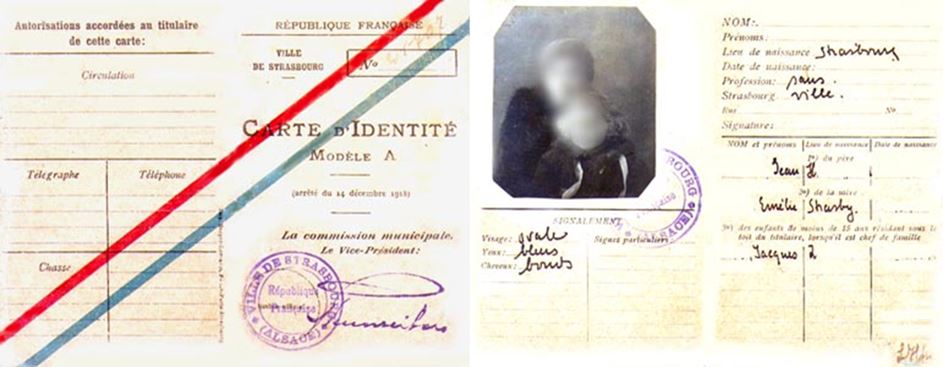 Autorisations accordées au titulaire
de cette carte:
Circulation
Télégraphe Téléphone
Chasse
RÉPUBLIQUE FRANÇAISE
VILLE
DE STRASBOURG
No
CARTE D'IDENTITÉ
MODÈLE A
(arrêté du 24 décembre 1918)
La commission municipale.
Le Vice-Président:
VILLE DE STRASBOURG
République
Française
(ALSACE)
BOURG
(ALSACE)
SIGNALEMENT
Visage: ovale
Yeux: bleus
Cheveux:
Signes particuliers
NOM:
Prénoms:
Lieu de naissance Strasbourg
Date de naissance:
Profession: sans
Strasbourg ville.
Rue No
Signature:
NOM et prénoms Lieu de naissance Date de naissance
1o) du père
Jean
2o) de la mère
Emilie Strasbg.
3o) des enfants de moins de 15 ans résident sous le
toit du titulaire, lorsqu'il est chef de famille
Jacques